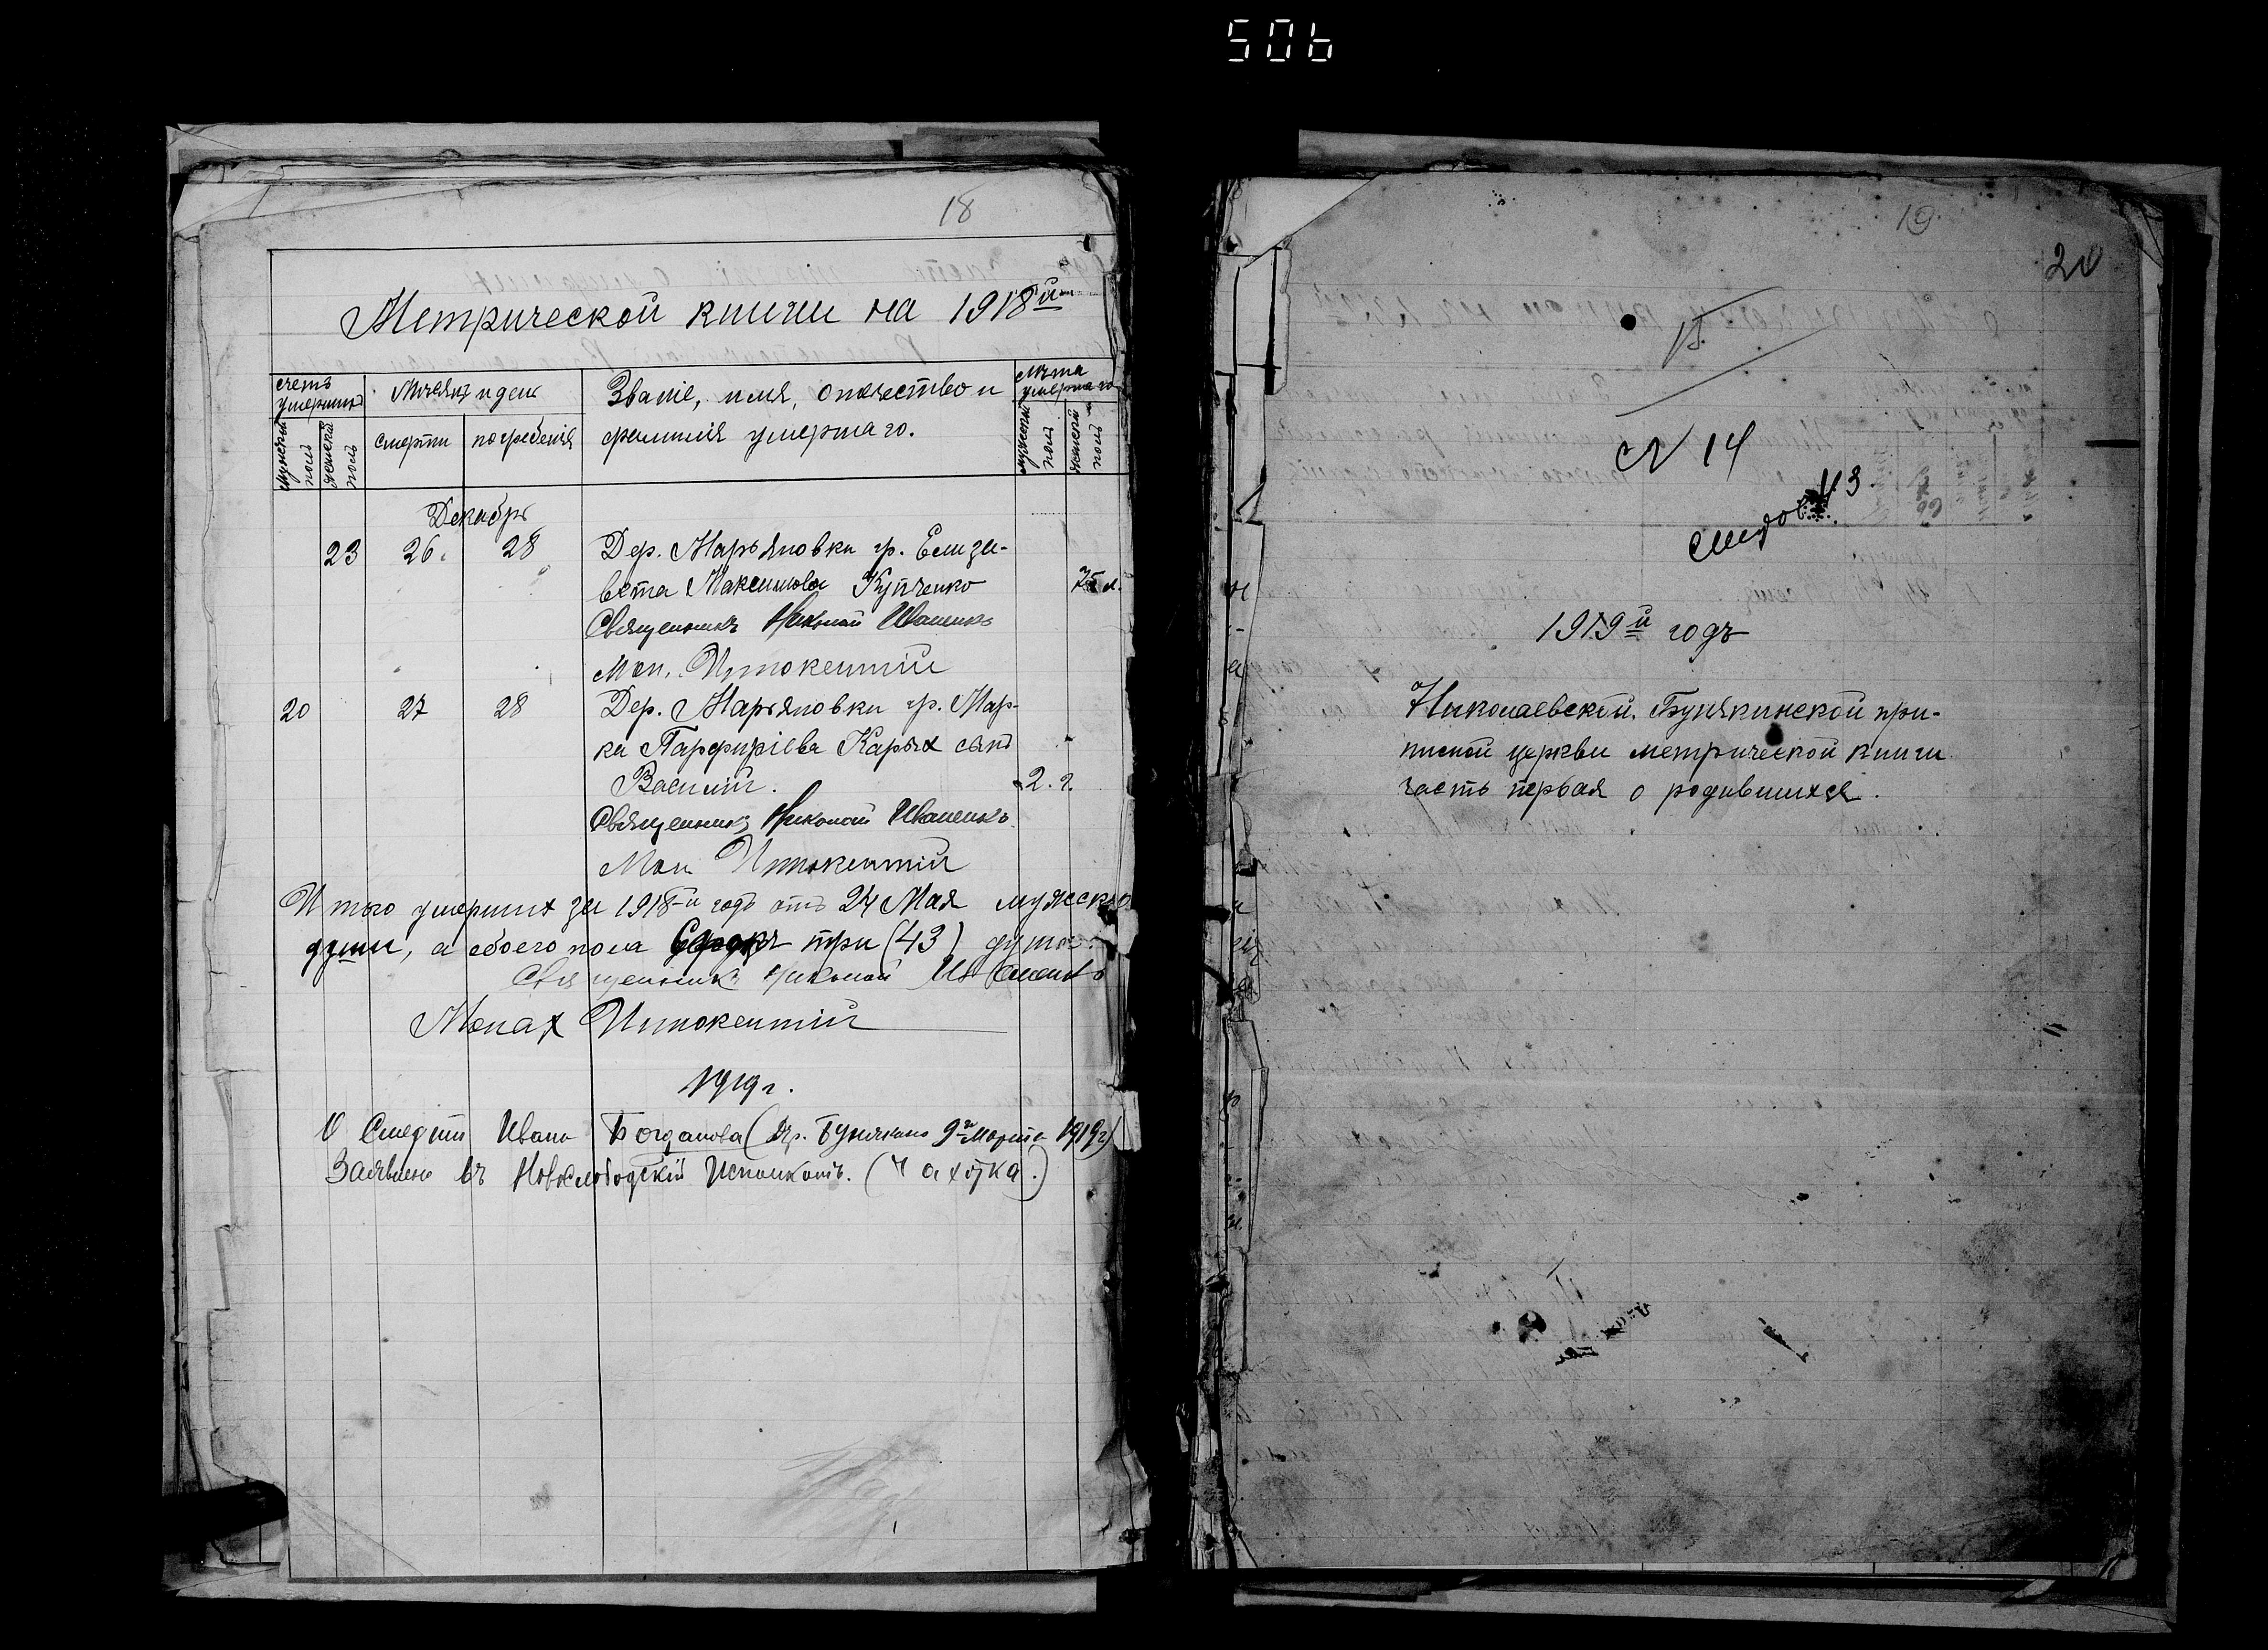 506
18
Метрической книги на 1918й
счетъ умершихъ
Мѣсяцъ и день
Званіе, имя, отчество и
лѣта умершаго
мужской полъ
женскій полъ
смерти
погребенія
фамилія умершаго.
мужской полъ
женскій полъ
Декабрь
23 26. 28 Дер. Марьяновки гр. Елиза-
вета Максимова Купченко 75 л.
Священникъ Николай Иваненко
Мон. Иннокентій
20 27 28 Дер. Марьяновки гр. Мар-
ка Парфиріева Карых сынъ
Василій. 2. г.
Священникъ Николай Иваненко
Мон. Иннокентій
Итого умерших за 1918-й годъ отъ 24 Мая мужско
души, а обоего пола Сорокъ три (43) душъ.
Священникъ Николай Иваненко
Монах Иннокентій
1919 г.
О Смерти Ивана Богданова (Др. Бунякино 9го Марта 1919 г)
Заявлено въ Новослободскій Исполкомъ. (Чахотка.)
19
20
15.
N 14
N 3
1919й годъ
Николаевской. Бунякинской при-
писной церкви метрической книги
часть первая о родившихся.